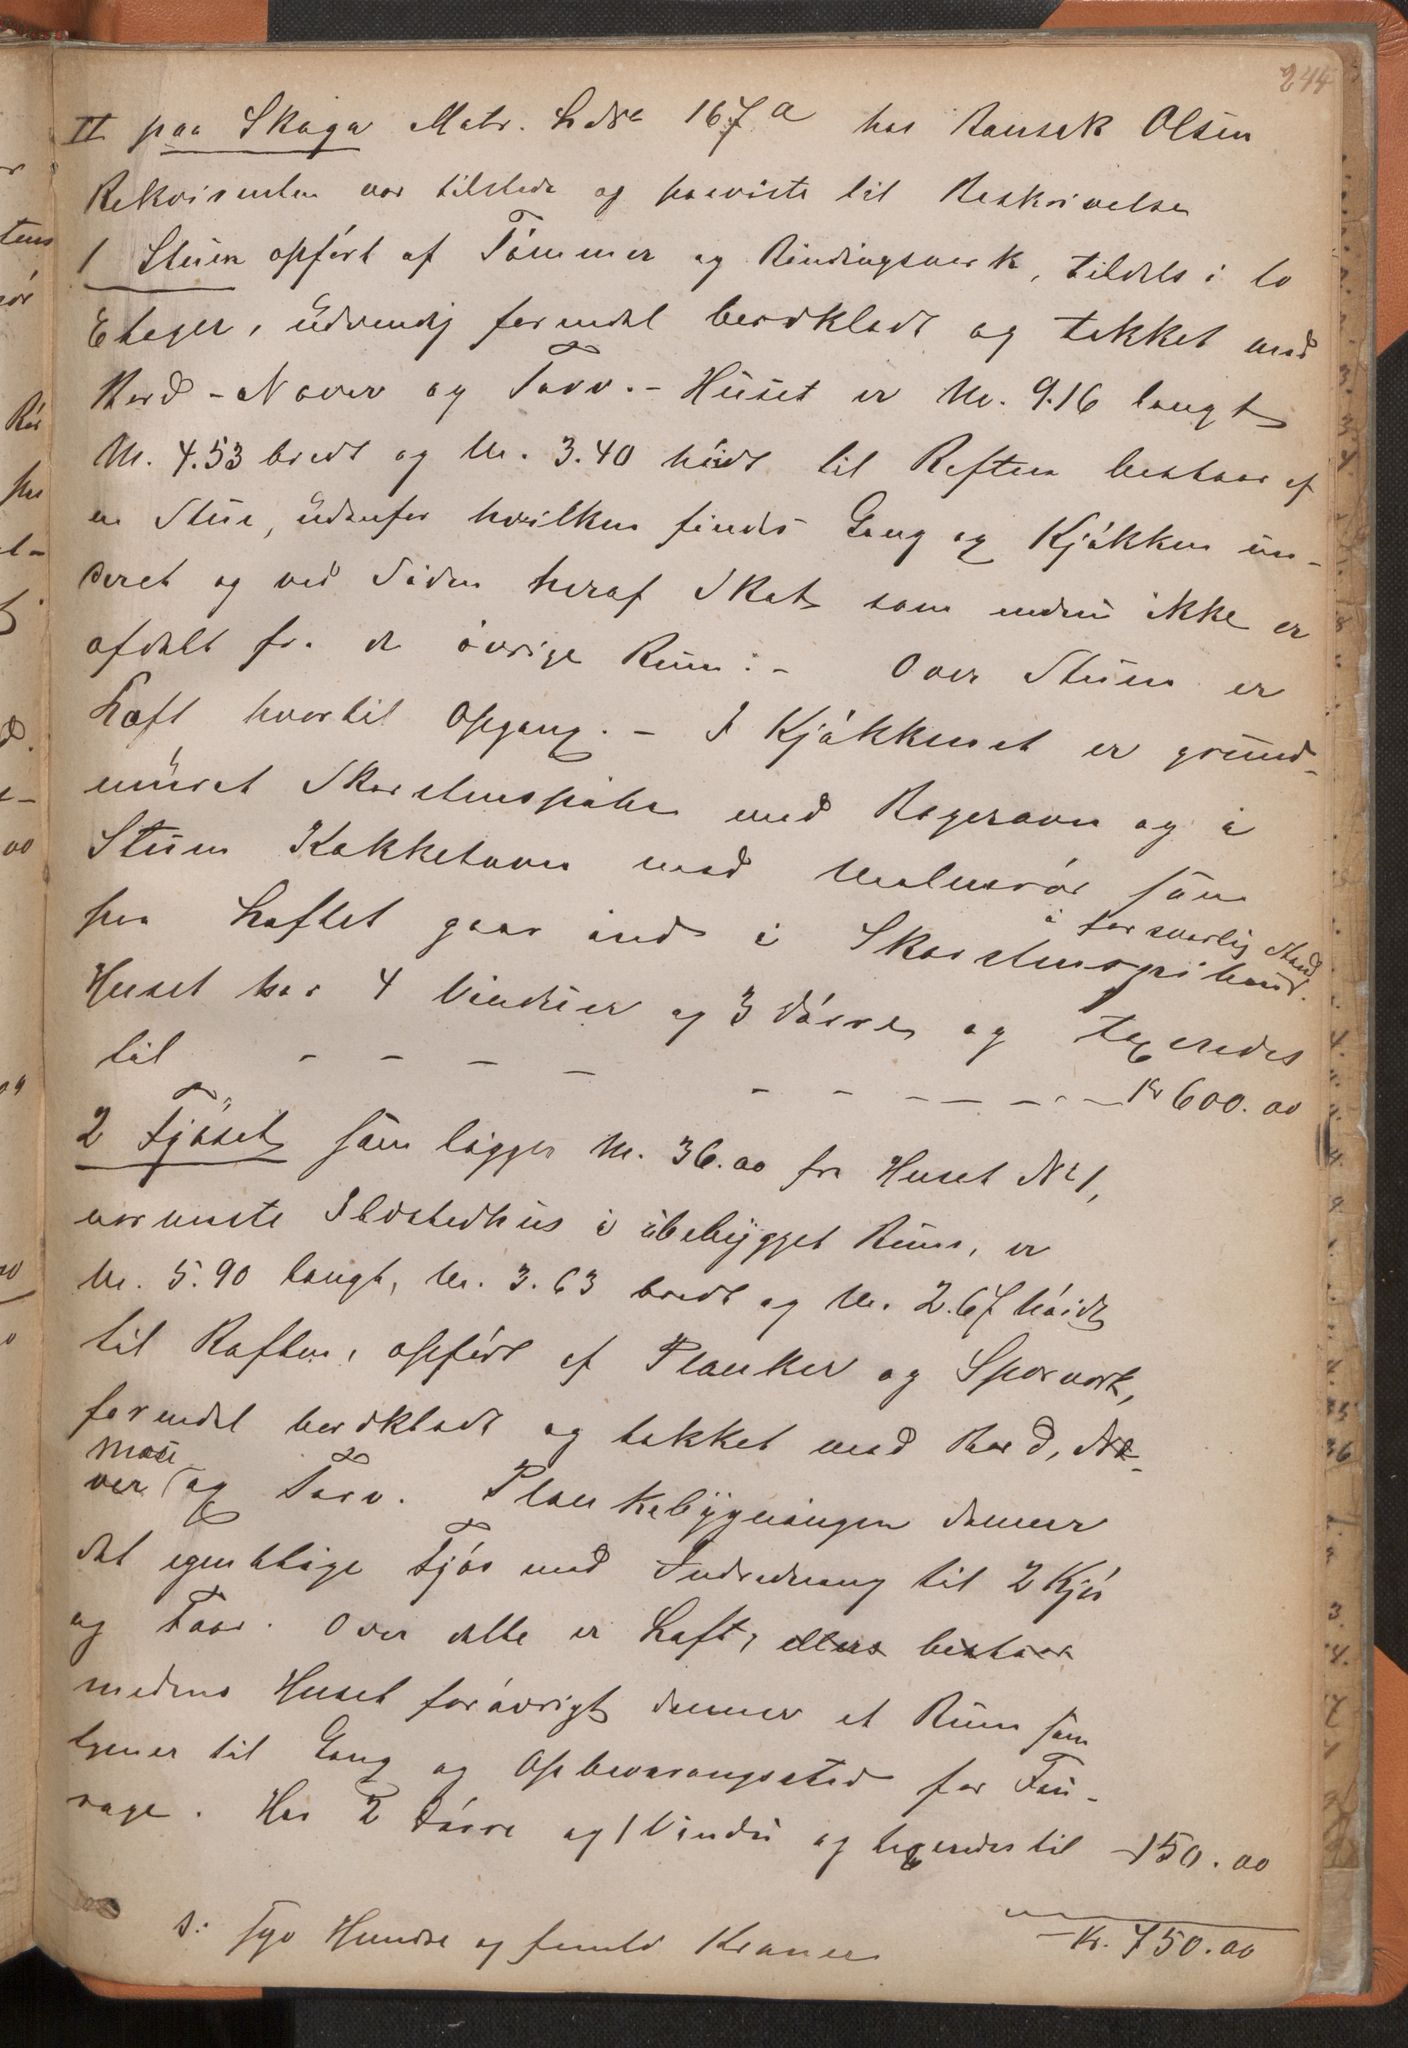 244
II paa Skaga Matr. Lbn. 167a hos Bansek Olsen
Rekvirenten var tilstede og paaviste til Beskrivelse
1 Stuen opført af Tømmer og Bindingsverk, tildels i to
Etager, udvendig forendel bordklædt og tækket med
Bord - Næver og Torv. - Huset er M. 9.16 langt
M. 4.53 bredt og M. 3.40 høidt til Raften bestaar af
en Stue, udenfor hvilken findes Gang og Kjøkken un-
deret og ved Siden heraf Skot som endnu ikke er
afdelt fra de øvrige Rum. - Over Stuen er
Loft hvortil Opgang. - I Kjøkkenet er grund-
muret Skorstenspibe med Bagerovn og i
Stuen Kakkelovn med Malmrør som
paa Loftet gaar ind i Skorstenspiben
i forsvarlig Stand.
Huset har 4 Vinduer og 3 Dørre og taxeredes
til - - - - - - - - - - Kr 600.00
2 Fjøset som ligger M. 36.00 fra Huset No 1,
nærmeste Ildstedhus i ubebygget Rum, er
M. 5.90 langt, M. 3.63 bredt og M. 2.67 høidt
til Raften, opført af Planker og Sperverk,
forendel bordklædt og tækket med Bord, Næ-
ver Mose og Torv. Plankebygningen danner
det egentlige Fjøs med Indredning til 2 Kjør
og Faar. Over dette er Loft, ellers bestaar
medens Huset forøvrigt danner et Rum som
tjener til Gang og Opbevaringssted for Fou-
rage. Har 2 Dørre og 1 Vindu og taxeredes til - 150.00
Kr. 750.00
s: syv Hundre og femti Kroner